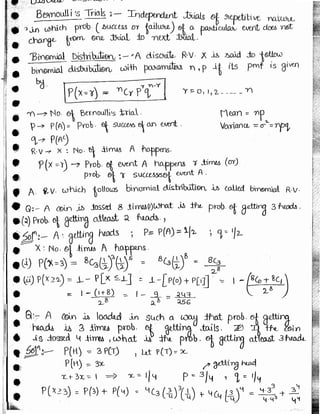 Bernoulli's Trials :— Independent trials of repetitive nature
in which prob (success or failure) of a particular event does not
change from one trial to next trial.
Binomial Distribution :- A discrete R.V X is said to follow
binomial distribution with parameters n, p if its pmf is given
by.
P(X=r) = nCr pʳ qⁿ⁻ʳ r = 0, 1, 2, ----- n
n → No. of Bernoulli's trial. Mean = np
p → P(A) = Prob. of success of an event. Variance = σ² = npq
q → P(Aᶜ)
R.V → X : No. of times A happens.
P(X=r) → Prob of event A happens r times (or)
prob of r successes of event A.
A R.V. which follows binomial distribution is called binomial R.V.
Q:- A coin is tossed 8 times (1) What is the prob. of getting 3 heads.
(2) Prob of getting atleast 2 heads.
Solⁿ:- A : getting heads ; P = P(A) = 1/2 ; q = 1/2
X : No. of times A happens.
(i) P(X=3) = 8C₃ (1/2)³ (1/2)⁵ = 8C₃ (1/2)⁸ = 8C₃/2⁸
(ii) P(X≥2) = 1 - P[X ≤ 1] = 1 - [P(0) + P(1)] = 1 - (8C₀ + 8C₁ / 2⁸)
= 1 - (1+8)/2⁸ = 1 - 9/2⁸ = 247/256
Q:- A coin is loaded in such a way that prob. of getting
heads is 3 times prob. of getting tails. If the coin
is tossed 4 times, what is the prob. of getting atleast 3 heads
Solⁿ:- P(H) = 3P(T) , Let P(T) = x.
P(H) = 3x getting head
x + 3x = 1 ⟹ x = 1/4 p = 3/4 , q = 1/4
P(X≥3) = P(3) + P(4) = 4C₃ (3/4)³ (1/4) + 4C₄ (3/4)⁴ = 4·3³/4·4³ + 3⁴/4⁴